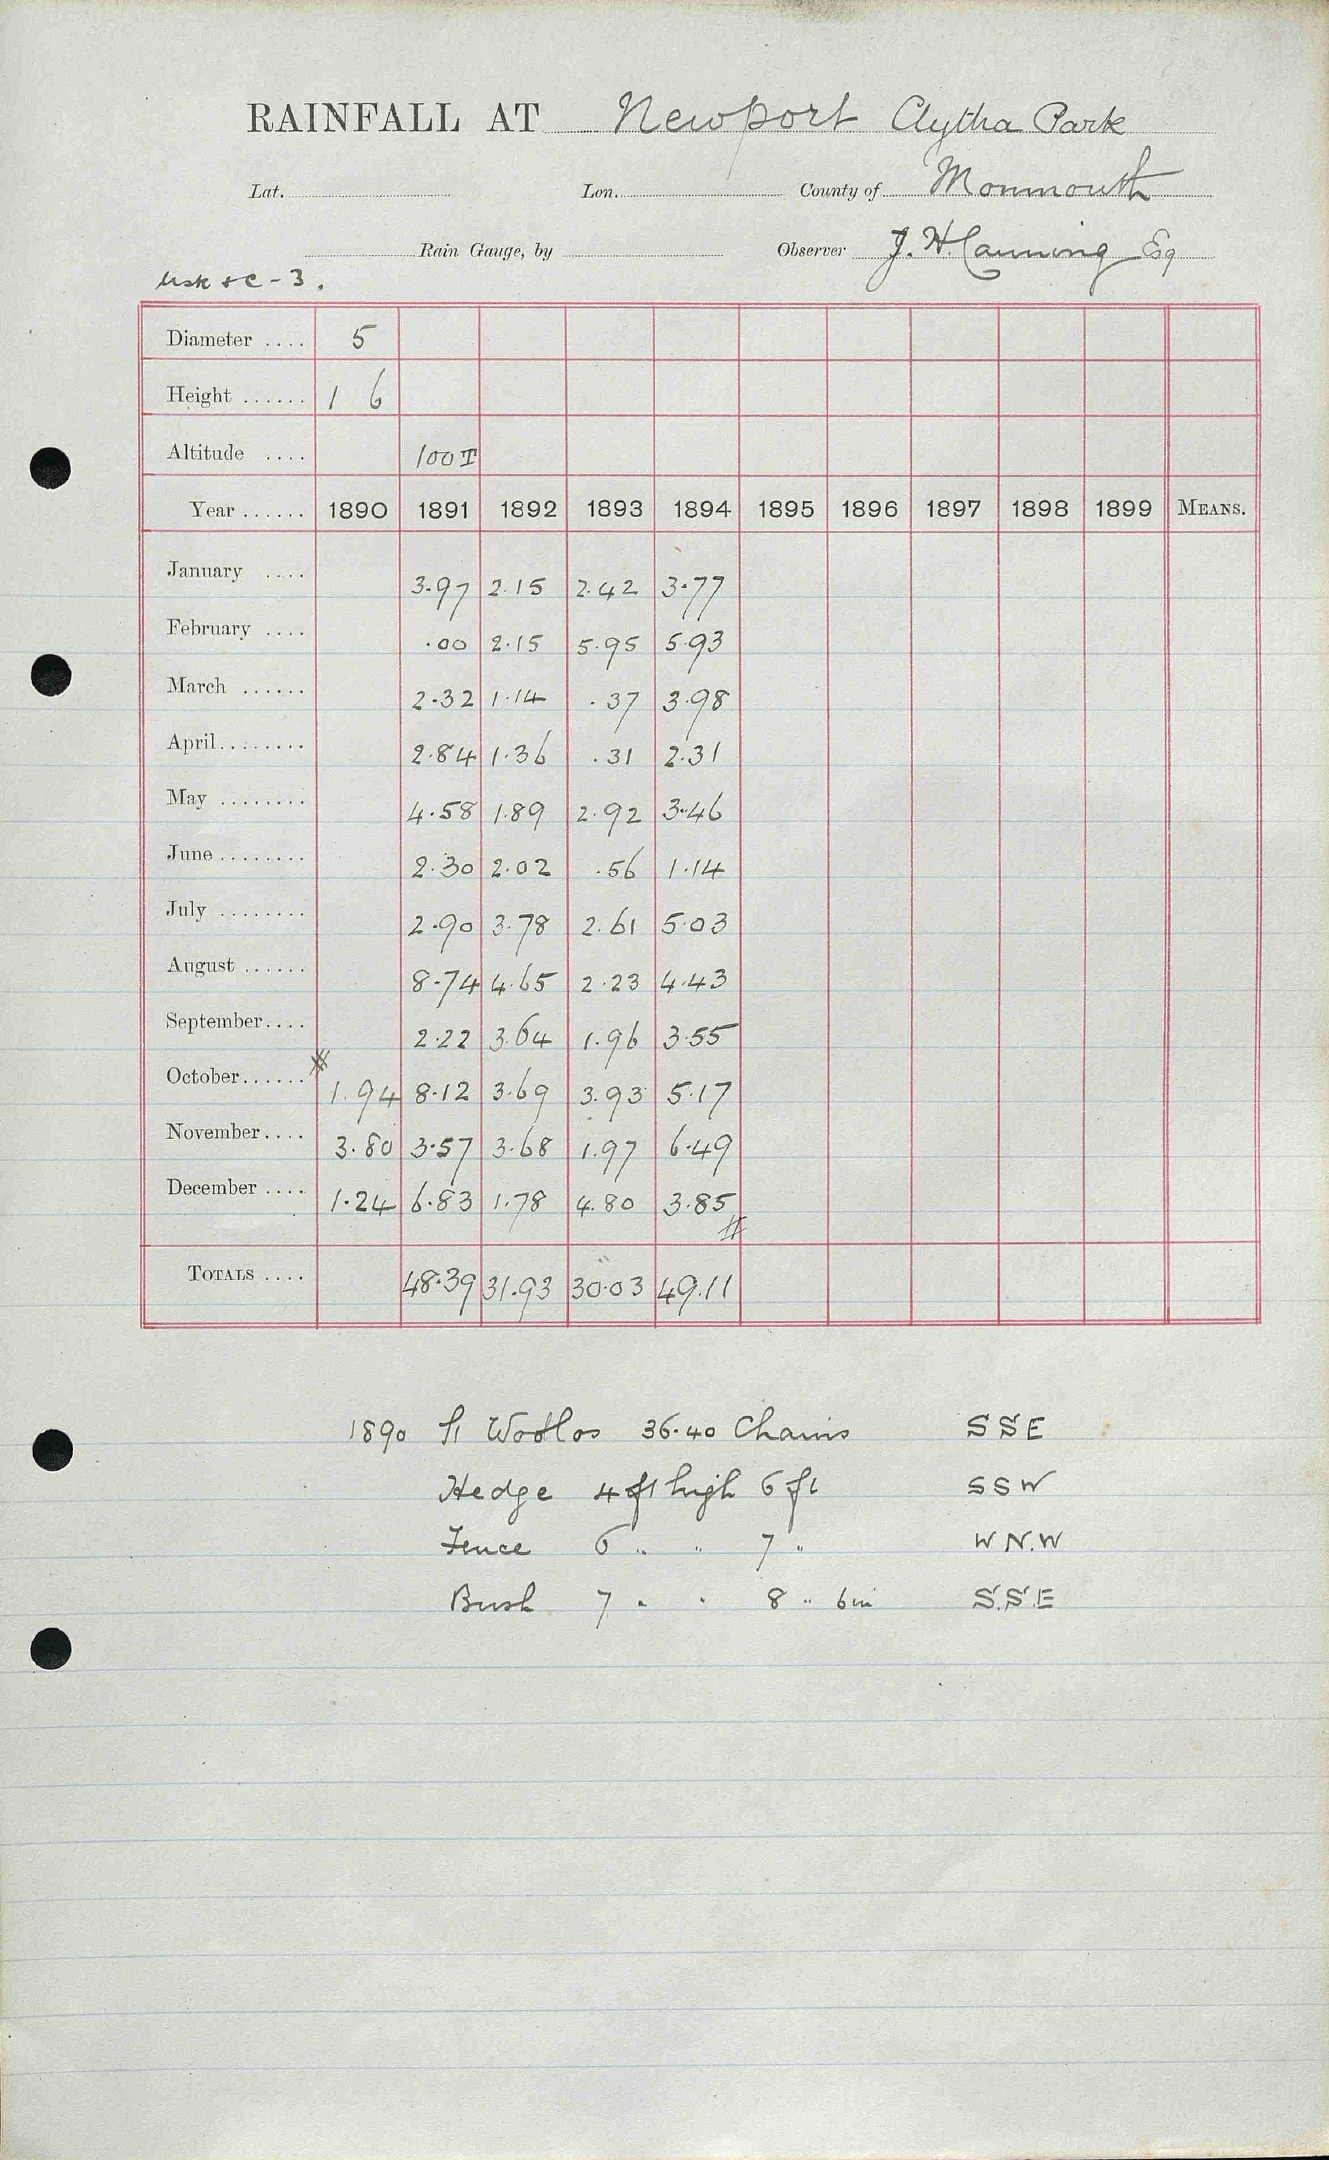 RAINFALL AT Newport Clytha Park
Lat. Lon. County of Monmouth
Rain Gauge, by Observer J. H. Canning Esq
Usk &c - 3.
Diameter .... 5
Height ...... 1 6
Altitude .... 100 T
Year ...... 1890 1891 1892 1893 1894 1895 1896 1897 1898 1899 MEANS.
January .... 3.97 2.15 2.42 3.77
February .... .00 2.15 5.95 5.93
March ...... 2.32 1.14 .37 3.98
April........ 2.84 1.36 .31 2.31
May ........ 4.58 1.89 2.92 3.46
June ........ 2.30 2.02 .56 1.14
July ........ 2.90 3.78 2.61 5.03
August ...... 8.74 4.65 2.23 4.43
September.... 2.22 3.64 1.96 3.55
October...... 1.94 8.12 3.69 3.93 5.17
November.... 3.80 3.57 3.68 1.97 6.49
December .... 1.24 6.83 1.78 4.80 3.85
TOTALS .... 48.39 31.93 30.03 49.11
1890 St Woollos 36.40 Chains SSE
Hedge 4 ft high 6 ft SSW
Fence 6 " " 7 " W N.W
Bush 7 " " 8 " 6 in S.S.E